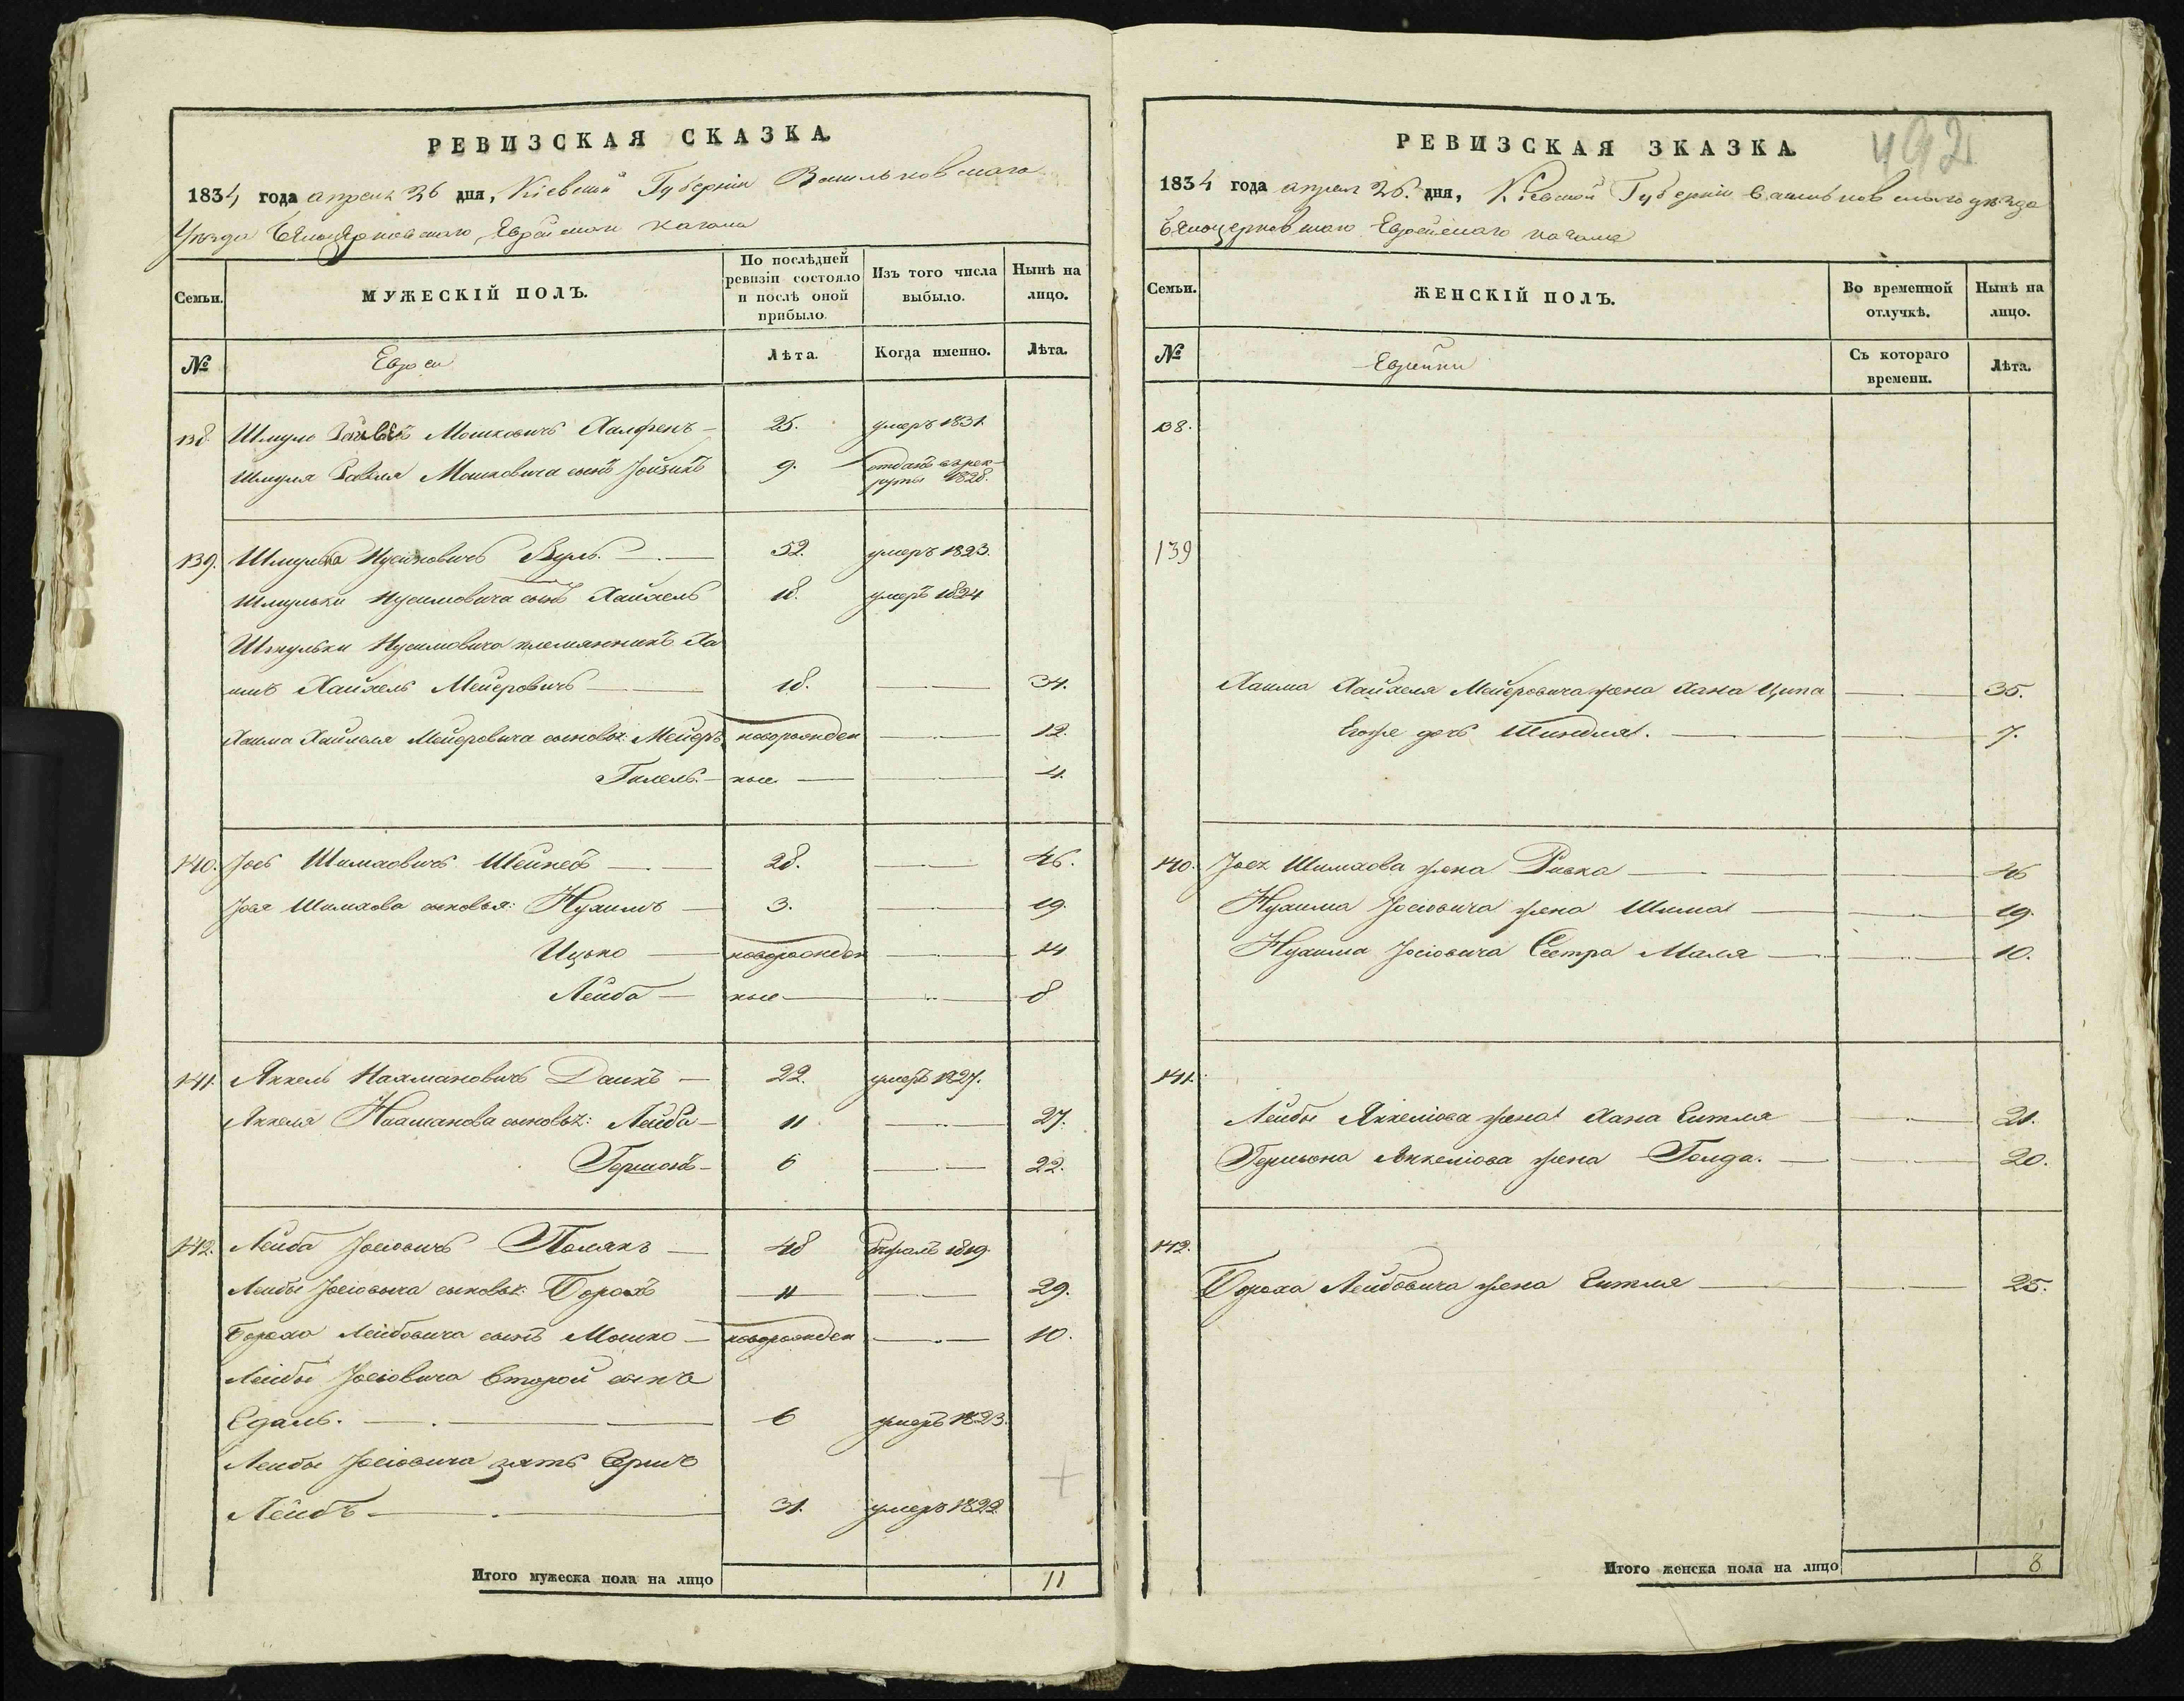 РЕВИЗСКАЯ СКАЗКА
1834 года апреля 26 дня, Кіевской Губерніи Васильковскаго
Уѣзда Бѣлоцерковскаго Еврейскаго кагала
Семьи.
МУЖЕСКІЙ ПОЛЪ.
По послѣдней ревизіи состояло и послѣ оной прибыло.
Изъ того числа выбыло.
Нынѣ на лицо.
№
Евреи
Лѣта.
Когда именно.
Лѣта.
138. Шмуль Мошковичъ — 25. умеръ 1831
Шмуля Мошковича сынъ Іойзикъ 9. отданъ въ рек-
руты 1828.
139. Шмулька Нусимовичъ — 52. умеръ 1823.
Шмульки Нусимовича сынъ Хайкель 18. умеръ 1824
Шмульки Нусимовича племянникъ Ха
имъ Хайкель Мейеровичъ — 18. — 34.
Хаима Хайкеля Мейеровича сыновья: Мейеръ новорожден — 12.
Гилель — ные — 4.
140. Іось Шимховичъ Шейнёв — 28. — 46.
Іося Шимхова сыновья: Нухимъ — 3. — 19.
Ицько — новорожден — 14
Лейба — ные — 8
141. Янкель Нахмановичъ — 22. умеръ 1827.
Янкеля Нахманова сыновья: Лейба — 11 — 27.
Гершонъ — 6 — 22.
142. Лейба Іосіовичъ Полякъ — 48 бѣжалъ 1819.
Лейбы Іосіовича сыновья: Борохъ — 11 — 29.
Бороха Лейбовича сынъ Мошко — новорожден — 10.
Лейбы Іосіовича второй сынъ
— 6 умеръ 1823.
Лейбы Іосіовича зять
Лейбъ — 31. умеръ 1822
Итого мужеска пола на лицо 11
492
РЕВИЗСКАЯ ЗКАЗКА
1834 года апреля 26. дня, Кіевской Губерніи Васильковскаго уѣзда
Бѣлоцерковскаго Еврейскаго кагала
Семьи.
ЖЕНСКІЙ ПОЛЪ.
Во временной отлучкѣ.
Нынѣ на лицо.
№
Еврейки
Съ котораго времени.
Лѣта.
138.
139
Хаима Хайкеля Мейеровича жена Хана Ципа — 35.
Егоже дочь Шиндля. — 7.
140. Іося Шимхова жена Ривка — 46
Нухима Іосіовича жена Шима — 19.
Нухима Іосіовича Сестра Маля — 10.
141.
Лейбы Янкеліова жена Хана Ентля — 21.
Гершона Янкеліова жена Голда. — 20.
142.
Бороха Лейбовича жена Ентля — 25.
Итого женска пола на лицо 8